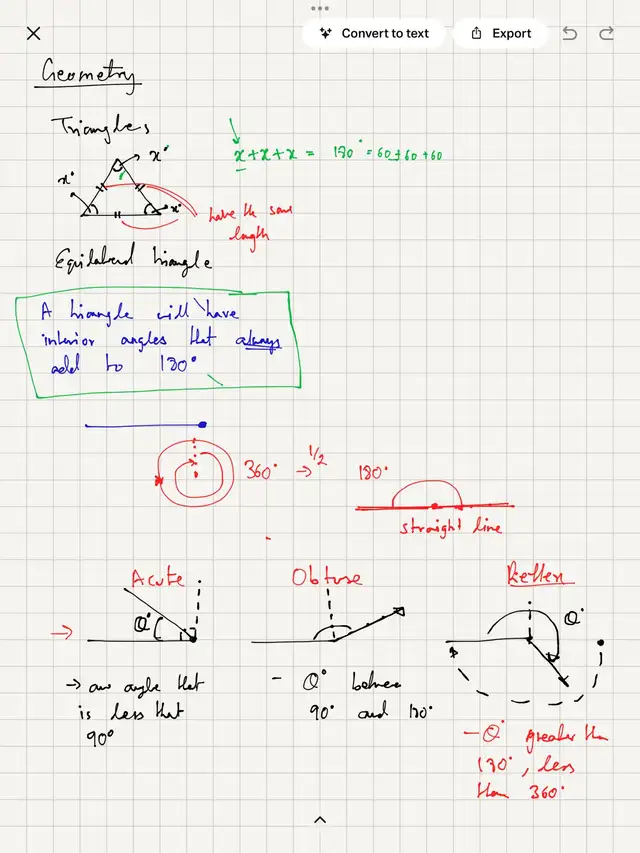 Convert to text
Export
Geometry
Triangles
x°
x + x + x = 180° = 60 + 60 + 60
x°
x°
have the same
length
Equilateral triangle
A triangle will have
interior angles that always
add to 180°
360° → 1/2 180°
straight line
Acute
Obtuse
Reflex
θ°
θ°
→ an angle that
is less that
90°
- θ° between
90° and 180°
- θ° greater than
180°, less
than 360°